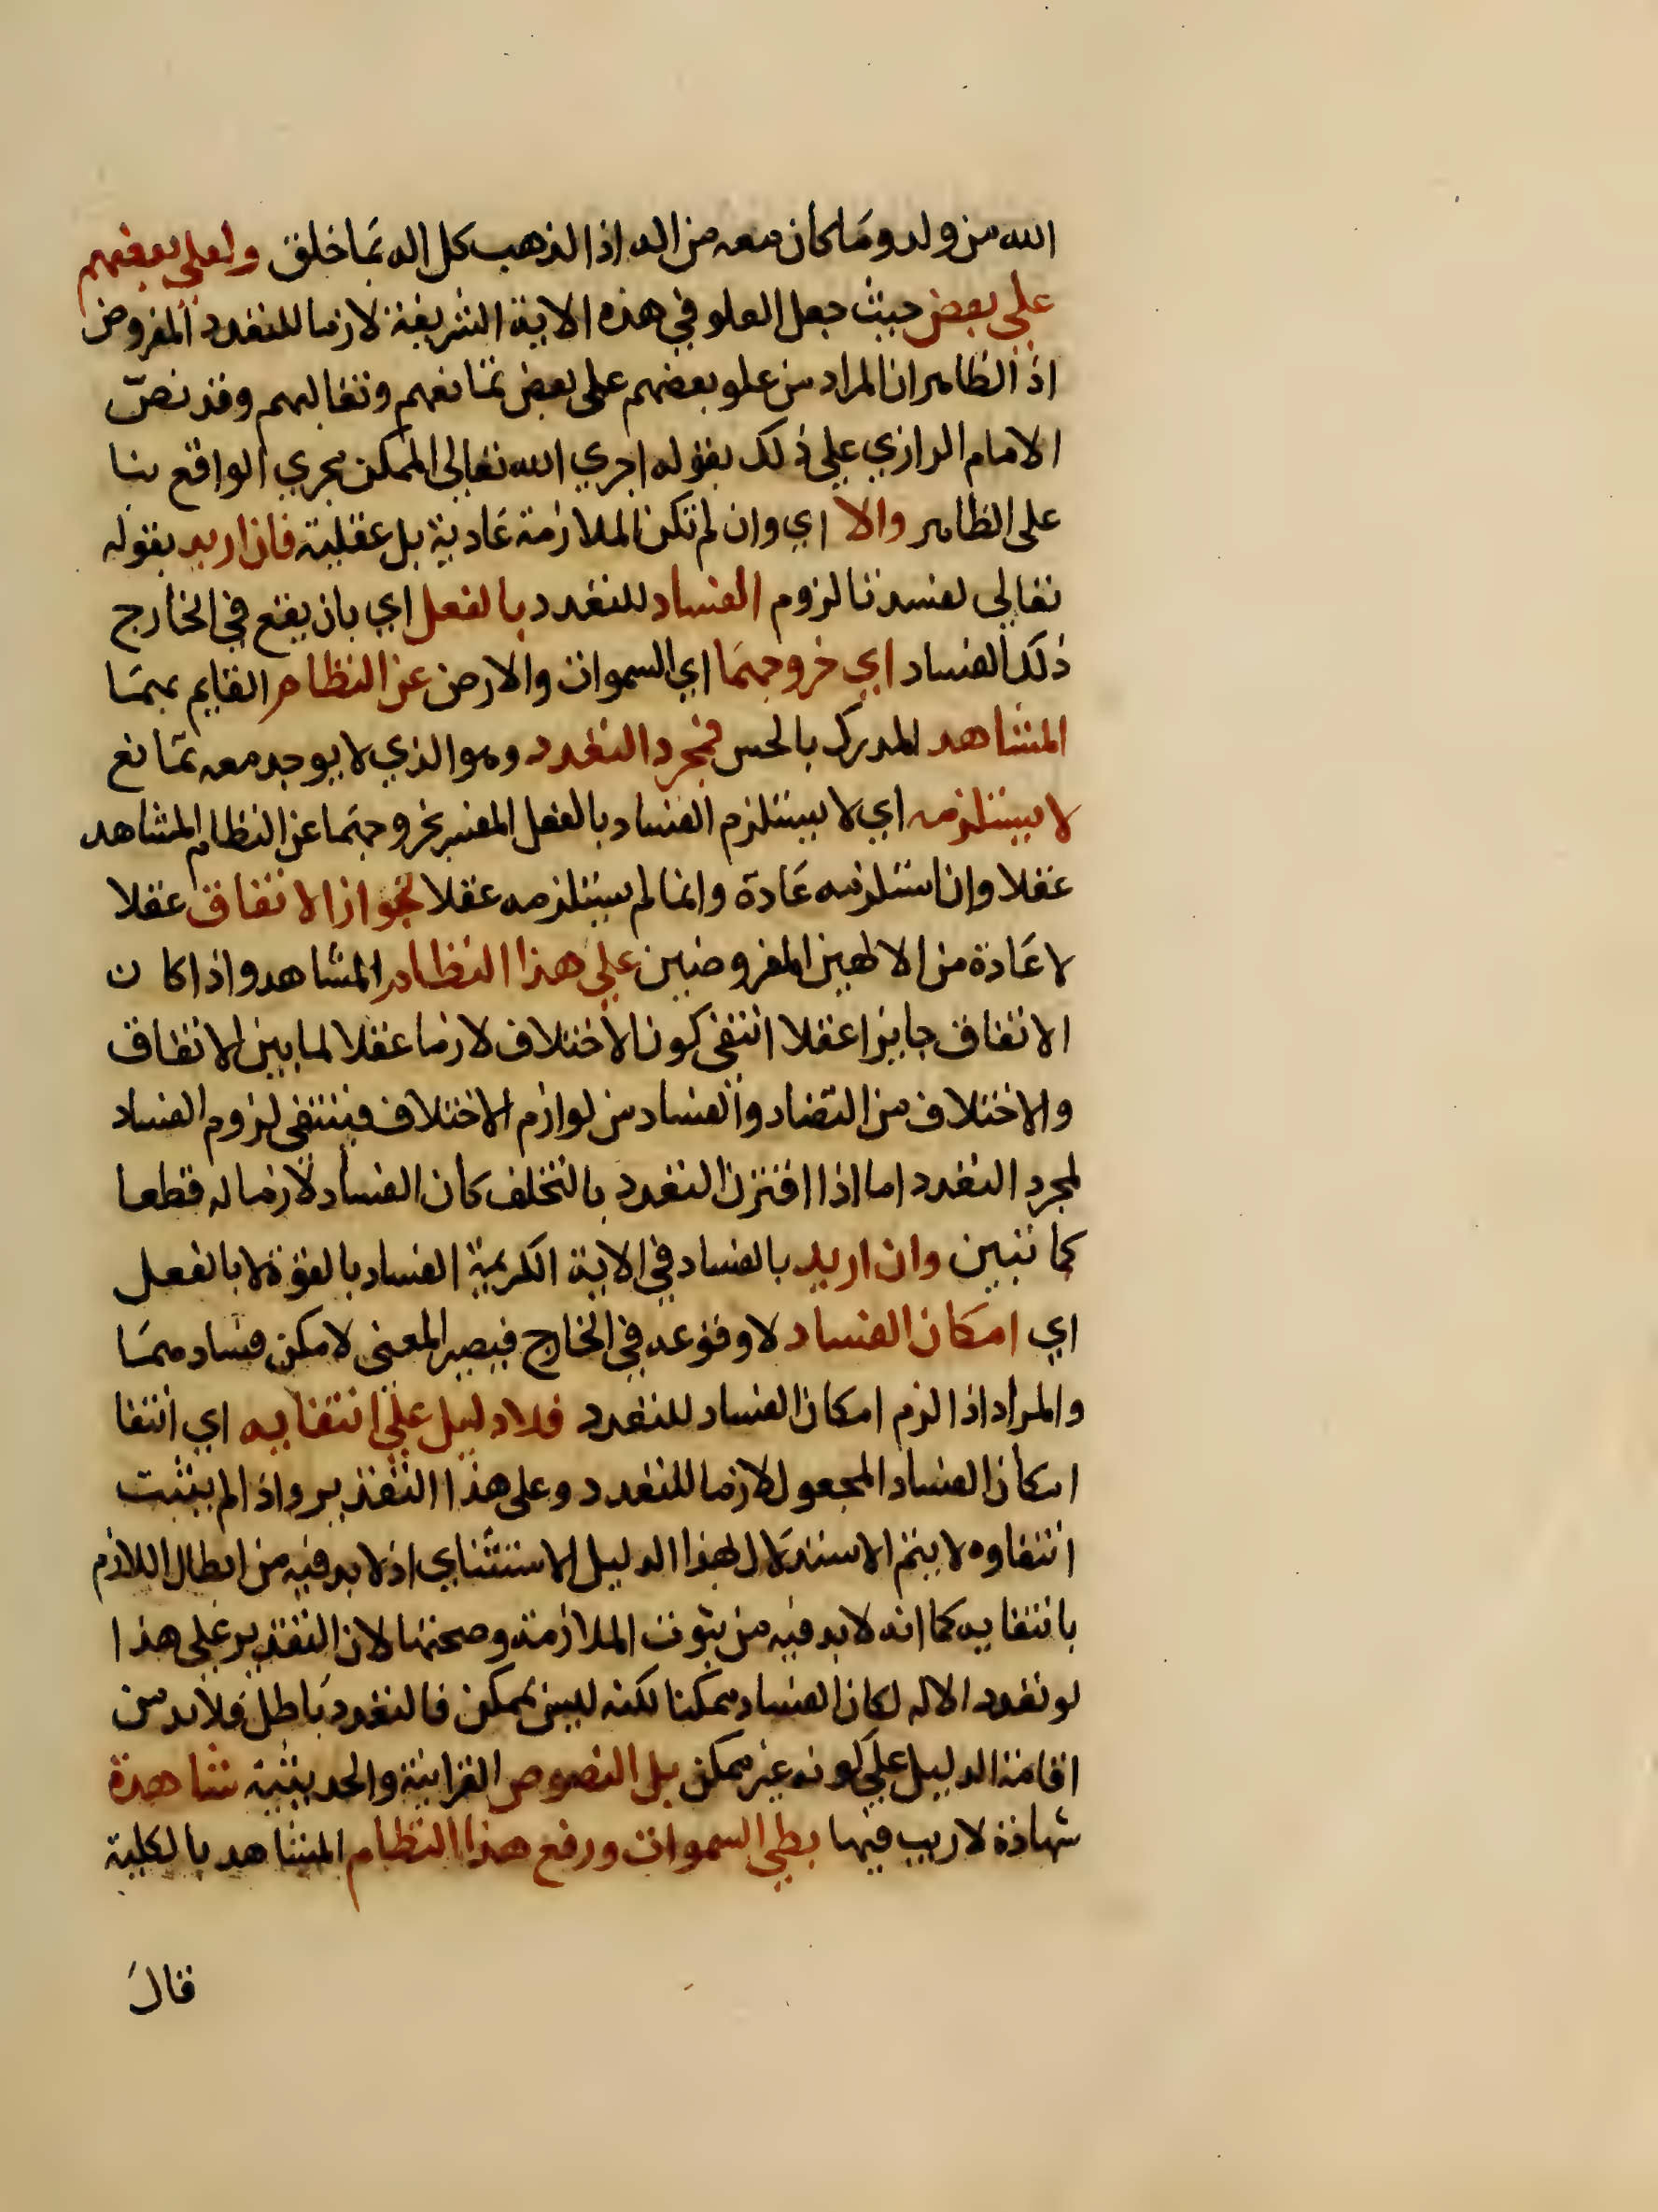 الله من ولد وما كان معه من اله اذا لذهب كل اله بما خلق ولعلي بعضهم
علي بعض حيث جعل العلو في هذه الاية الشريفة لازما للتعدد المفروض
اذ الظاهر ان المراد من علو بعضهم على بعض تمانعهم وتغالبهم وقد نصّ
الامام الرازي علي ذلك بقوله اجري الله تعالى الممكن مجري الواقع بنا
على الظاهر والا اي وان لم تكن الملازمة عادية بل عقلية فان اريد بقوله
تعالي لفسدتا لزوم الفساد للتعدد بالفعل اي بان يقع في الخارج
ذلك الفساد اي خروجهما اي السموات والارض عن النظام القايم بهما
المشاهد المدرك بالحس فمجرد التعدد وهو الذي لا يوجد معه تمانع
لا يستلزمه اي لا يستلزم الفساد بالفعل المفسر بخروجهما عن النظام المشاهد
عقلا وان استلزمه عادة وانما لم يستلزمه عقلا لجواز الاتفاق عقلا
لا عادة من الالهين المفروضين علي هذا النظام المشاهد واذا كان
الاتفاق جايزا عقلا انتفى كون الاختلاف لازما عقلا لما بين الاتفاق
والاختلاف من التضاد والفساد من لوازم الاختلاف فينتفى لزوم الفساد
لمجرد التعدد اما اذا اقترن التعدد بالتخلف كان الفساد لازما له قطعا
كما تبين وان اريد بالفساد في الاية الكريمة الفساد بالقوة لا بالفعل
اي امكان الفساد لا وقوعه في الخارج فيصير المعنى لامكن فسادهما
والمراد اذا لزم امكان الفساد للتعدد فلا دليل علي انتفايه اي انتفا
امكان الفساد المجعول لازما للتعدد وعلى هذا التقدير واذا لم يثبت
انتفاوه لا يتم الاستدلال لهذا الدليل الاستثناي اذ لا بد فيه من ابطال اللازم
بانتفايه كما انه لا بد فيه من ثبوت الملازمة وصحتها لان التقدير علي هذا
لو تعدد الاله لكان الفساد ممكنا لكنه ليس بممكن فالتعدد باطل فلا بد من
اقامة الدليل علي كونه غير ممكن بل النصوص القرانية والحديثية شاهدة
شهادة لا ريب فيها بطي السموات ورفع هذا النظام المشاهد بالكلية
قال